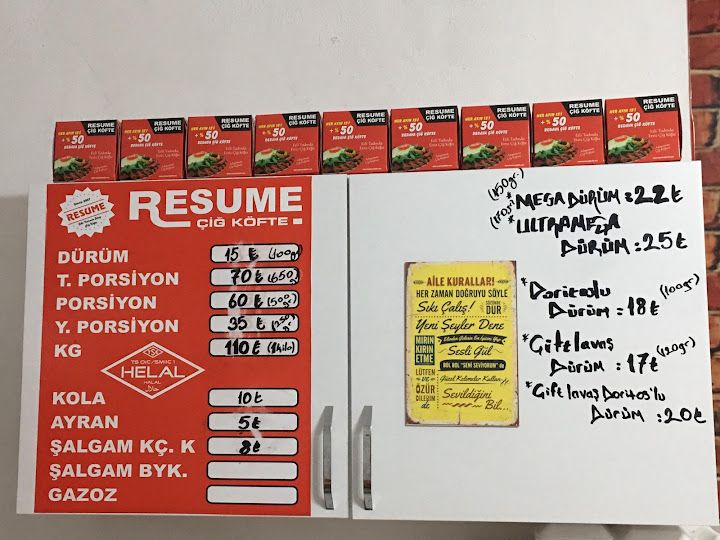 RESUME
ÇİĞ KÖFTE
HER AYIN 1Sİ
+ % 50
BEDAVA ÇİĞ KÖFTE
RESUME
RESUME
ÇİĞ KÖFTE
DÜRÜM 15 ₺ (100gr)
T. PORSİYON 70 ₺ (650gr)
PORSİYON 60 ₺ (500gr)
Y. PORSİYON 35 ₺
KG 110 ₺ (1kilo)
TSE
HELAL
HALAL
KOLA 10 ₺
AYRAN 5 ₺
ŞALGAM KÇ. K 8 ₺
ŞALGAM BYK.
GAZOZ
(150gr.)
* MEGA DÜRÜM = 22 ₺
* ULTRAMEGA
DÜRÜM = 25 ₺
* Doritoslu (100gr)
DÜRÜM = 18 ₺
* Çift lavaş (120gr)
DÜRÜM = 17 ₺
* Çift lavaş Doritos'lu
DÜRÜM : 20 ₺
AİLE KURALLARI!
HER ZAMAN DOĞRUYU SÖYLE
Sıkı Çalış! SÖZÜNDE DUR
Yeni Şeyler Dene
MIRIN KIRIN ETME
Sesli Gül
BOL BOL "SENİ SEVİYORUM" de
LÜTFEN ve ÖZÜR DİLERİM de
Güzel Kelimeler Kullan
Sevildiğini
Bil...